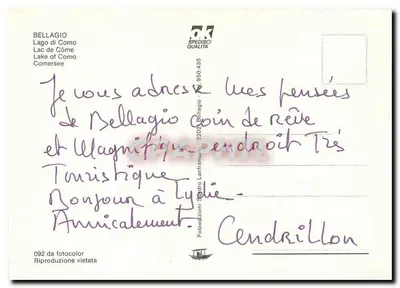 BELLAGIO
Lago di Como
Lac de Côme
Lake of Como
Comersee
OK
SPEDISCI
QUALITÀ
Je vous adresse mes pensées
de Bellagio coin de Rêve
et Magnifique endroit Très
Touristique
Bonjour à Lydie.
Amicalement.
Cendrillon
Bellagio 950.435
092 da fotocolor
Riproduzione vietata